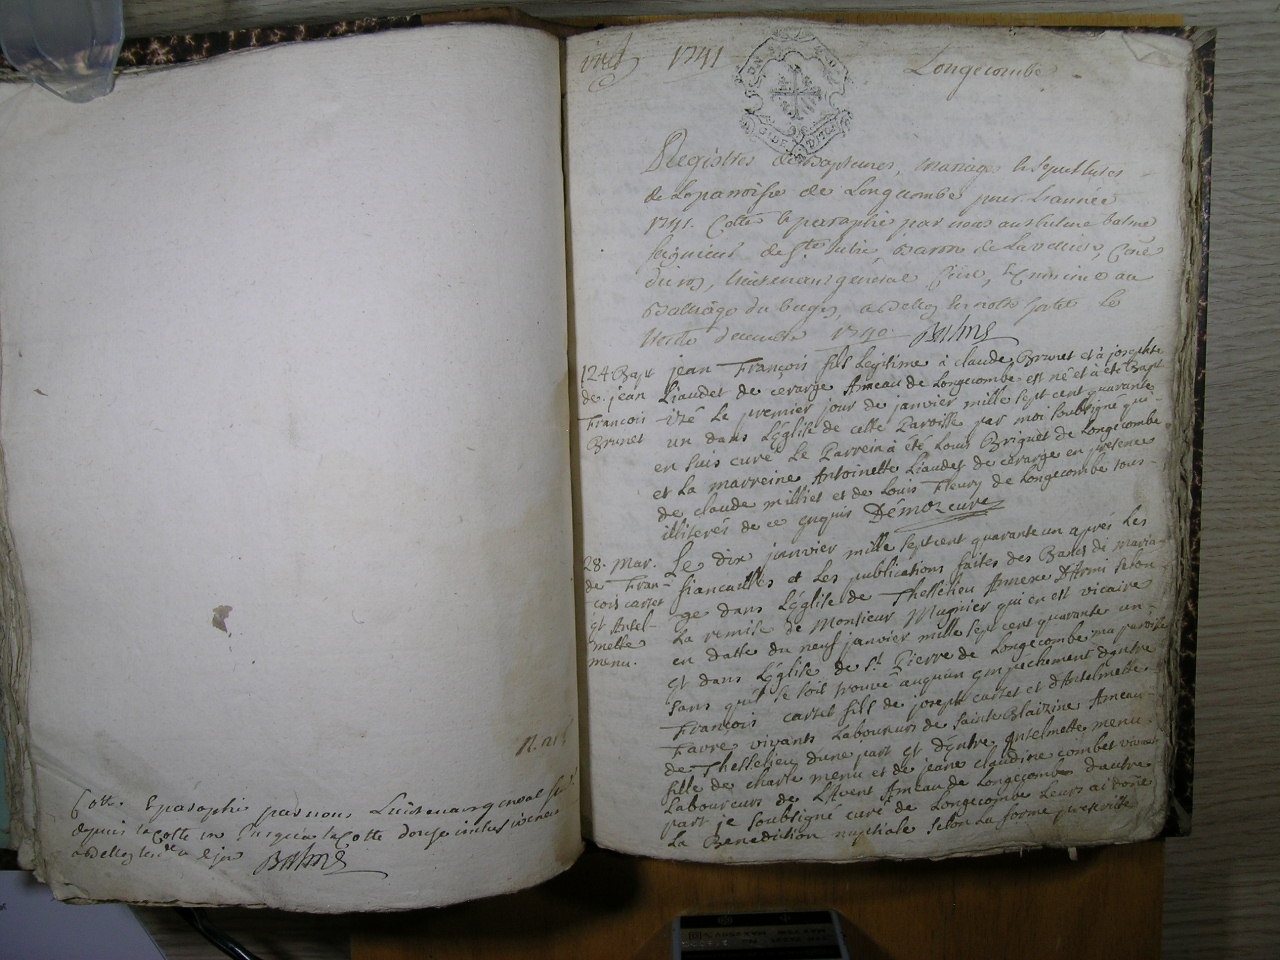 1741
Longecombe
Registres de Baptemes, mariage & sepultures
de la paroisse de Longecombe pour l'année
1741. Cotté & paraphé par nous balme
seigneur de Ste Julie, Baron de
du roy, lieutenant general Civil, & Criminel au
Balliage du bugey, a Belley
decembre 1740 Balme
124 Bapt
de jean
François
Brunet
jean François fils legitime à claude Brunet et à josephte
Liaudet de cerarge Ameau de Longecombe est né et à été Bapt
izé Le premier jour de janvier mille sept cent quarante
un dans L'église de cette Paroisse par moi soubsigné qui
en suis curé Le Parrein à été Louis Briguet de Longecombe
et La marreine Antoinette Liaudet de cerarge en presence
de claude milliet et de Louis Fleury de Longecombe tous
illiterés de ce enquis Démoz curé
28. Mar.
de Fran-
çois cartet
et Antel-
mette
menu.
Le dix janvier mille sept cent quarante un aprés Les
fiancailles et Les publications faites des Bancs de maria-
ge dans L'église de Thesselieu Annexe D'Armi selon
La remise de Monsieur Mugnier qui en est vicaire
en datte du neuf janvier mille sept cent quarante un
et dans L'église de St. Pierre de Longecombe ma paroisse
sans qu'il se soit trouvé auqun empechement d'entre
François cartet fils de joseph cartet et d'Antelmette
Favre vivants Laboureurs de Sainte Blaizine Ameau
de Thesselieu d'une part et d'entre Antelmette menu
fille de charle menu et de jeane claudine combet vivants
Laboureurs de L'Avent Ameau de Longecombe d'autre
part je soubsigné curé de Longecombe Leurs ai donné
La Benediction nuptiale selon La forme prescritte
Cotté & paraphé par nous Lieutenant general
depuis la Cotte un jusqu'a la Cotte douze inclusivement
a Belley Balme